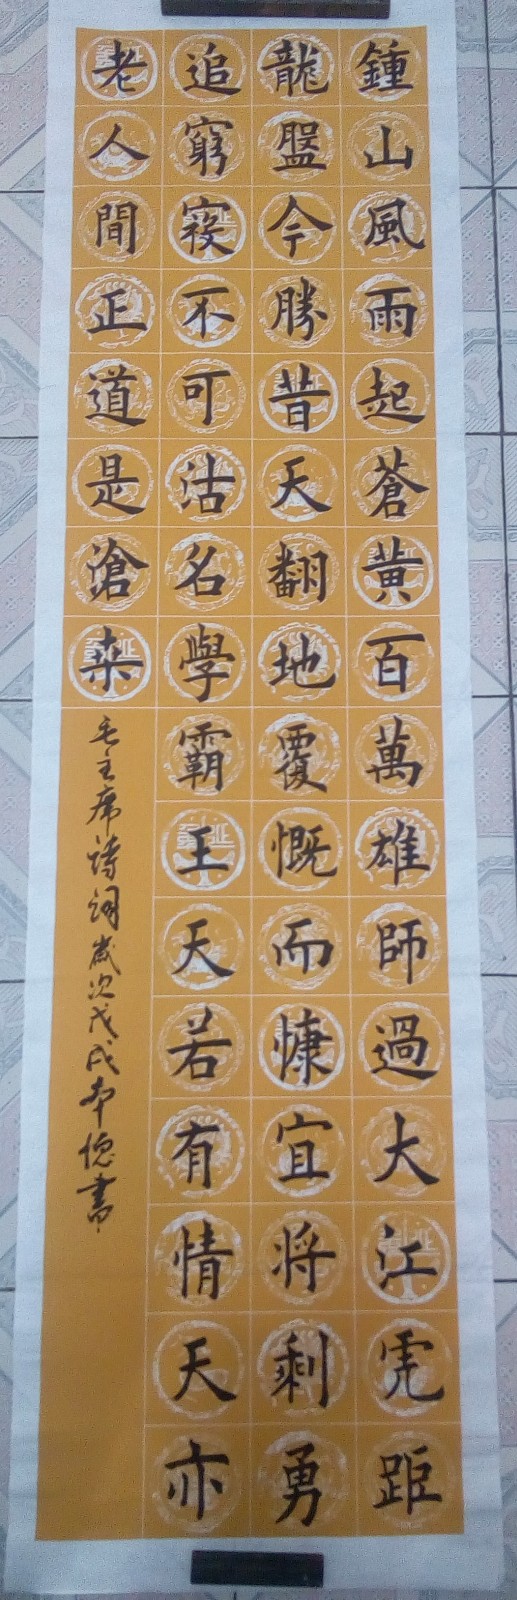 鍾山風雨起蒼黄百萬雄師過大江虎距
龍盤今勝昔天翻地覆慨而慷宜将剩勇
追窮寇不可沽名學霸王天若有情天亦
老人間正道是滄桒
毛主席詩词歲次戊戌书